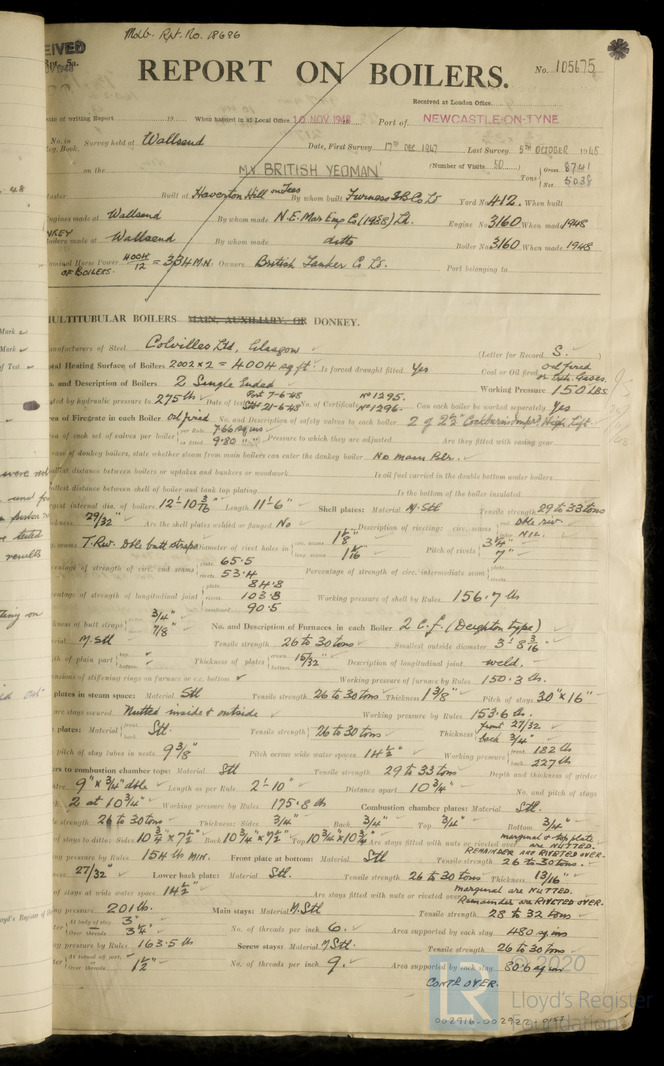 Mdb. Rpt. No. 18696
EIVED
REPORT ON BOILERS.
No. 105675
Received at London Office
ate of writing Report 19 When handed in at Local Office 10 NOV 1948 Port of NEWCASTLE-ON-TYNE
No. in Survey held at Wallsend Date, First Survey 17TH DEC 1947 Last Survey 5TH OCTOBER 1948
eg. Book. (Number of Visits 50)
on the M.V. 'BRITISH YEOMAN' Tons Gross 8741 Net 5038
aster Built at Haverton Hill on Tees By whom built Furness S.B. Co Ld Yard No 412. When built
ngines made at Wallsend By whom made N.E. Mar Eng Co (1938) Ld. Engine No 3160 When made 1948
NKEY oilers made at Wallsend By whom made ditto Boiler No 3160 When made 1948
ominal Horse Power 4004/12 = 334 M.N. Owners British Tanker Co Ld. Port belonging to
OF BOILERS.
MULTITUBULAR BOILERS MAIN, AUXILIARY, OR DONKEY.
anufacturers of Steel Colvilles Ltd, Glasgow (Letter for Record S.)
tal Heating Surface of Boilers 2002 x 2 = 4004 sq ft. Is forced draught fitted Yes Coal or Oil fired oil fired or Exh. Gases.
o. and Description of Boilers 2 Single Ended Working Pressure 150 LBS
ted by hydraulic pressure to 275 lbs Date of test Port 7-6-48 Stbd 21-6-48 No. of Certificate No 1295. No 1296. Can each boiler be worked separately Yes
ea of Firegrate in each Boiler oil fired No. and Description of safety valves to each boiler 2 of 2½" Cockburn Impr'd High Lift
ea of each set of valves per boiler per Rule 7.66 sq ins as fitted 9.80 " " Pressure to which they are adjusted Are they fitted with easing gear
case of donkey boilers, state whether steam from main boilers can enter the donkey boiler No main Blr.
allest distance between boilers or uptakes and bunkers or woodwork Is oil fuel carried in the double bottom under boilers
allest distance between shell of boiler and tank top plating Is the bottom of the boiler insulated
argest internal dia. of boilers 12'-10 3/16" Length 11'-6" Shell plates: Material M.Stl Tensile strength 29 to 33 tons
ckness 29/32" Are the shell plates welded or flanged No Description of riveting: circ. seams Dble riv. NIL.
g. seams T.Riv. Dble butt straps Diameter of rivet holes in circ. seams 1 1/8" long. seams 1 1/16 Pitch of rivets 3¼" 7"
rcentage of strength of circ. end seams plate 65.5 rivets 53.4 Percentage of strength of circ. intermediate seam
rcentage of strength of longitudinal joint plate 84.8 rivets 103.8 combined 90.5 Working pressure of shell by Rules 156.7 lbs
ckness of butt straps 3/4" 7/8" No. and Description of Furnaces in each Boiler 2 C.f. (Deighton type)
terial M.Stl Tensile strength 26 to 30 tons Smallest outside diameter 3'-8 3/16"
th of plain part top bottom Thickness of plates crown bottom 15/32" Description of longitudinal joint weld.
ensions of stiffening rings on furnace or c.c. bottom Working pressure of furnace by Rules 150.3 lbs.
plates in steam space: Material Stl Tensile strength 26 to 30 tons Thickness 1 3/8" Pitch of stays 30" x 16"
are stays secured Nutted inside & outside Working pressure by Rules 153.6 lbs.
plates: Material front back Stl. Tensile strength 26 to 30 tons Thickness front 27/32 back 3/4"
pitch of stay tubes in nests 9 3/8" Pitch across wide water spaces 14½" Working pressure front 182 lbs back 227 lbs
ers to combustion chamber tops: Material Stl Tensile strength 29 to 33 tons Depth and thickness of girder
tre 9" x 3/4" dble Length as per Rule 2'-10" Distance apart 10¾" No. and pitch of stays
2 at 10¾" Working pressure by Rules 175.8 lbs Combustion chamber plates: Material Stl.
le strength 26 to 30 tons Thickness: Sides 3/4" Back 3/4" Top 3/4" Bottom 3/4"
of stays to ditto: Sides 10¾" x 7½" Back 10¾" x 7½" Top 10¾" x 10¾" Are stays fitted with nuts or riveted over marginal & top plate are NUTTED. REMAINDER are RIVETED OVER.
g pressure by Rules 154 lbs MIN. Front plate at bottom: Material Stl Tensile strength 26 to 30 tons.
27/32" Lower back plate: Material Stl. Tensile strength 26 to 30 tons Thickness 13/16"
of stays at wide water space 14½" Are stays fitted with nuts or riveted over marginal are NUTTED. Remainder are RIVETED OVER.
g pressure 201 lbs. Main stays: Material M.Stl Tensile strength 28 to 32 tons
At body of stay 3" Over threads 3¼" No. of threads per inch 6. Area supported by each stay 480 sq ins
g pressure by Rules 163.5 lbs Screw stays: Material M.Stl. Tensile strength 26 to 30 tons
At turned off part Over threads 1½" No. of threads per inch 9. Area supported by each stay 80.6 sq ins
CONTD OVER.
© 2020
LR
Lloyd's Register
Foundation
002916-002922-0157